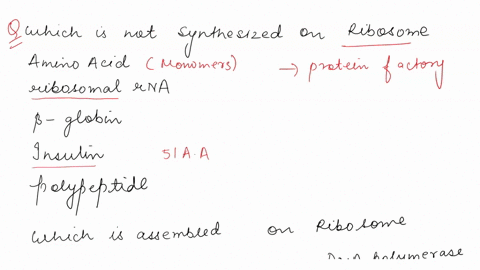 Q which is not synthesized on Ribosome
Amino Acid (Monomers) → protein factory
ribosomal RNA
β-globin
Insulin 51 A.A
polypeptide
which is assembled on Ribosome
polymerase